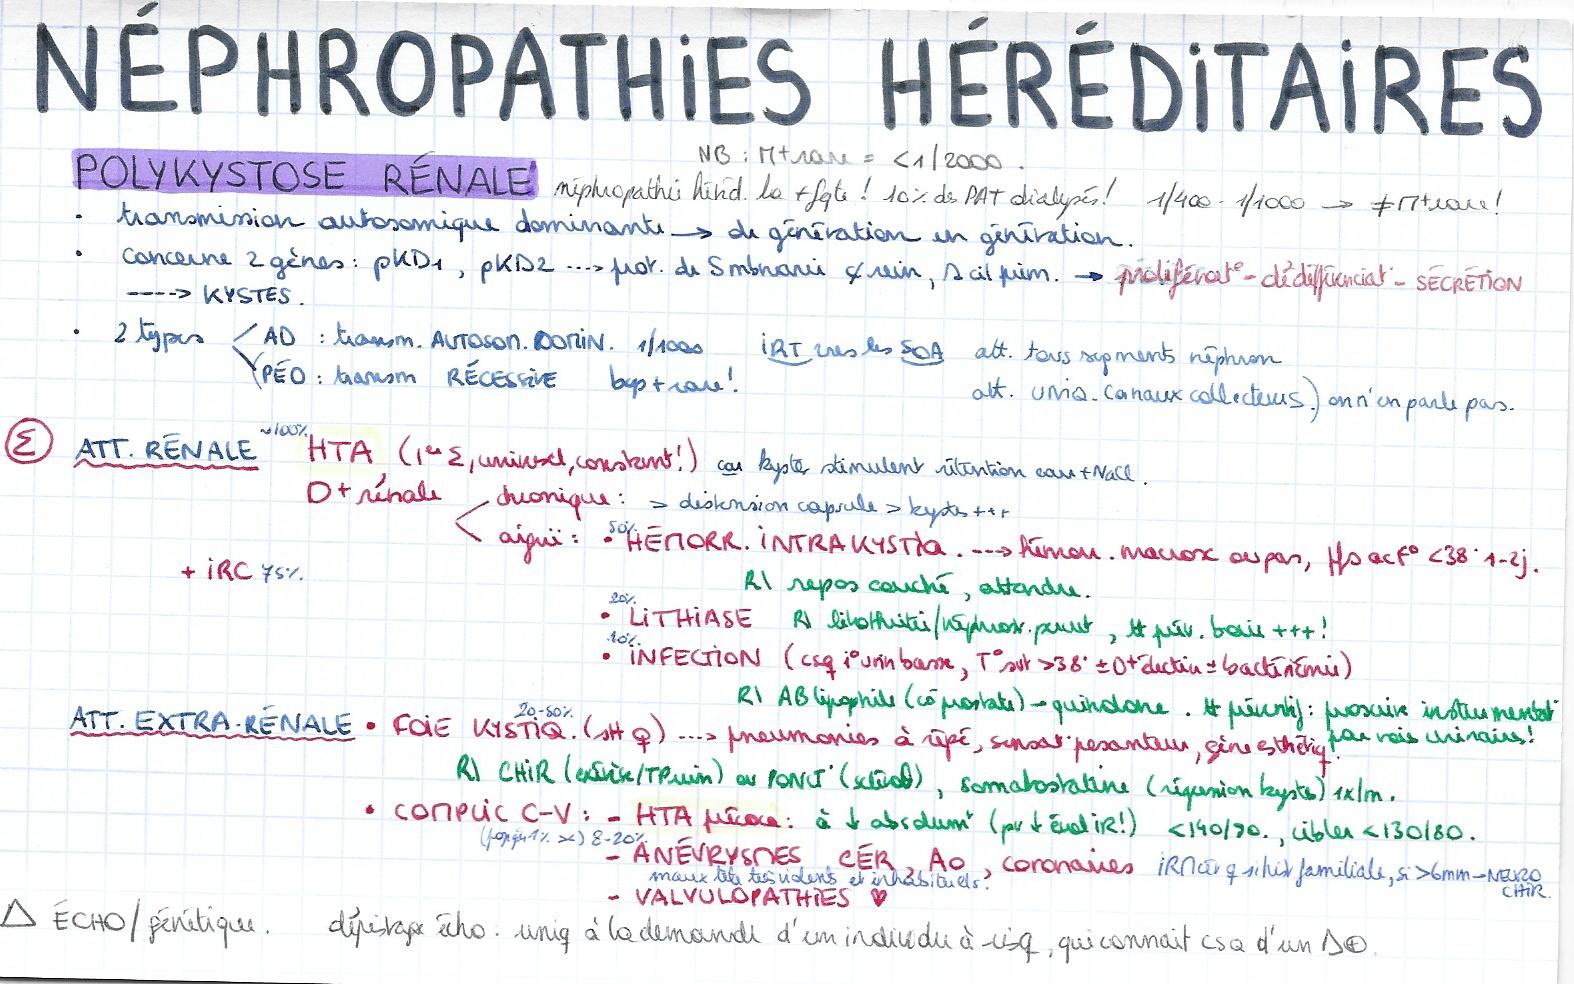 NÉPHROPATHiES HÉRÉDiTAiRES
NB : M+rare = <1/2000.
POLYKYSTOSE RÉNALE néphropathie héréd. la +fqte ! 10% des PAT dialysés ! 1/400 - 1/1000 → ≠ M+rare !
• transmission autosomique dominante → de génération en génération.
• Concerne 2 gènes : pKD1, pKD2 ---> prot. de mbranaire rein, cil prim. → proliférat° - dédifférenciat° - SÉCRÉTiON
----> KYSTES.
• 2 types AD : transm. AUTOSOM. DOMiN. 1/1000 iRT vers les 50A att. tous segments néphron
PÉD : transm RÉCESSiVE bcp + rare ! att. UNiQ. Canaux collecteurs.) on n'en parle pas.
Σ ATT. RÉNALE ~100% HTA (1er Σ, universel, constant !) car kystes stimulent rétention eau + NaCl.
D+ rénale chronique : > distension capsule > kystes +++
aiguë : • 50% HÉMORR. iNTRAKYSTiQ. ---> hémat. macrox ou pas, f° <38° 1-2j.
+ iRC 75%. R\ repos couché, attendre.
• 20% LiTHiASE R\ lithothritie/néphros. percut, # prév. boire +++ !
• 10% iNFECTiON (csq i° urin basse, T° svt >38° ± D+ ± bactériémie)
R\ AB lipophile (cô prostate) - quinolone. # : proscrire instrumentat°
ATT. EXTRA-RÉNALE • FOiE KYSTiQ. 20-80% (sH ♀) ---> pneumonies à répé, sensat° pesanteur, gêne esthétiq. par voies urinaires !
R\ CHiR (exérèse/) ou PONCT°, somatostatine (régression kystes) 1x/m.
• COMPLiC C-V : - HTA précoce : à ↓ absolumt (pr ↓ évol iR !) <140/90., cibler <130/80.
8-20% - ANÉVRYSMES CÉR, Ao, coronaires si hist familiale, si >6mm - NEURO
maux tête très violents et inhabituels. CHiR.
- VALVULOPATHiES ♥
Δ ÉCHO/génétique. dépistage écho. uniq à la demande d'un individu à risq, qui connait csq d'un Δ⊕.